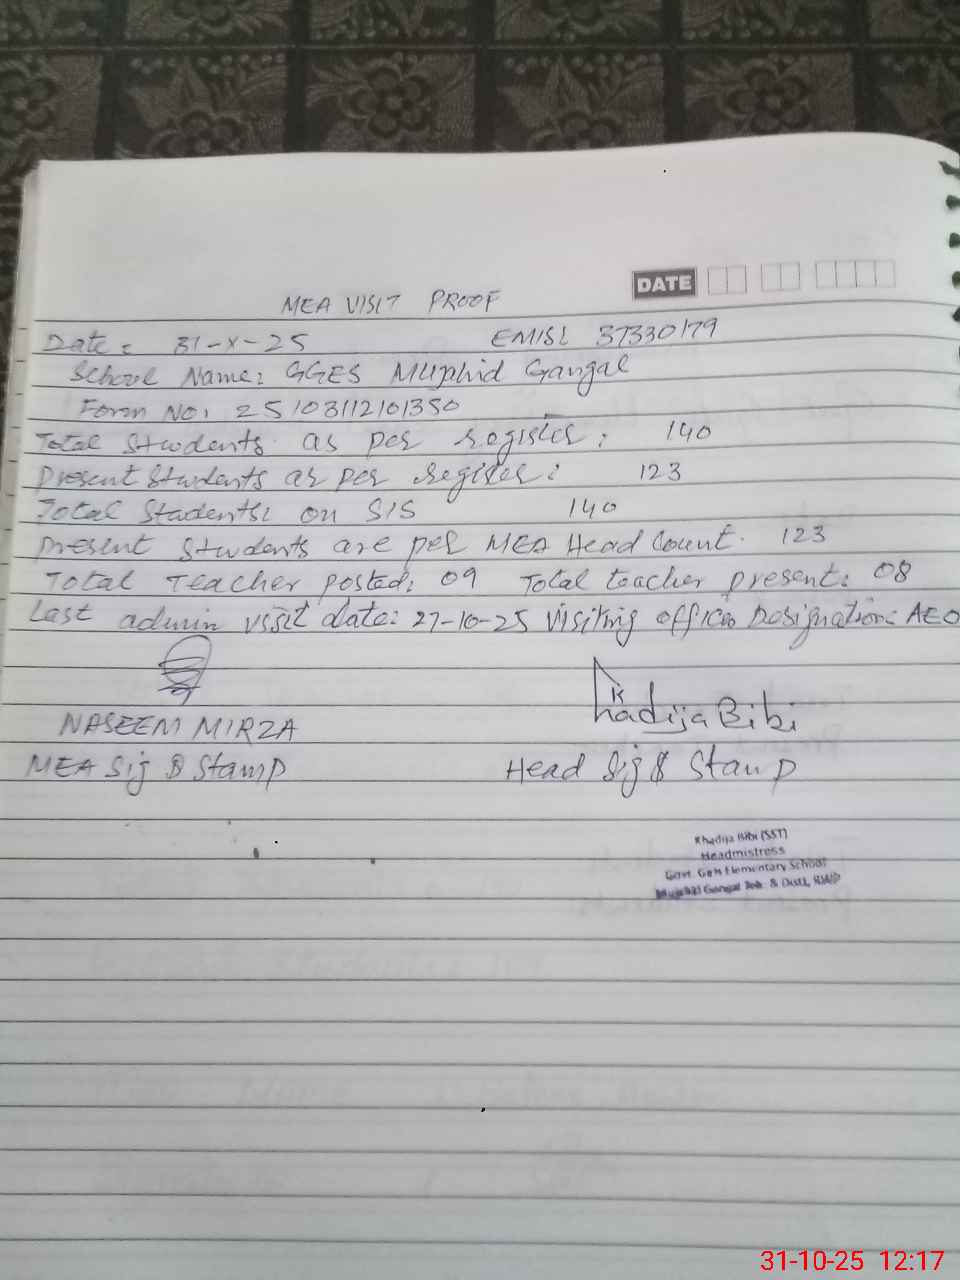 DATE
MEA VISIT PROOF
Date: 31-X-25 EMIS: 37330179
School Name: GGES Mujahid Gangal
Form No: 25103112101350
Total Students as per register: 140
Present Students as per register: 123
Total Students: on SIS 140
Present Students are per MEA Head Count. 123
Total Teacher posted: 09 Total teacher present: 08
Last admin visit date: 27-10-25 Visiting officer Designation: AEO
NASEEM MIRZA Khadija Bibi
MEA Sig & Stamp Head Sig & Stamp
Khadija Bibi (SST)
Headmistress
Govt. Girls Elementary School
Gangal Teh. & Distt,
31-10-25 12:17